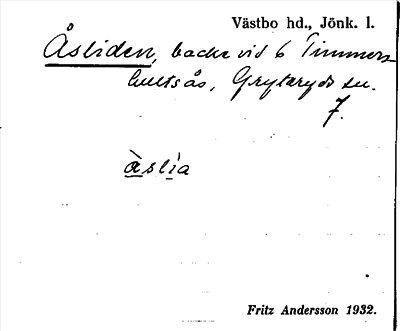 Västbo hd., Jönk. l.
Åsliden, backe vid 6 Timmers-
hultsås, Gryteryds sn.
7.
àslìa
Fritz Andersson 1932.